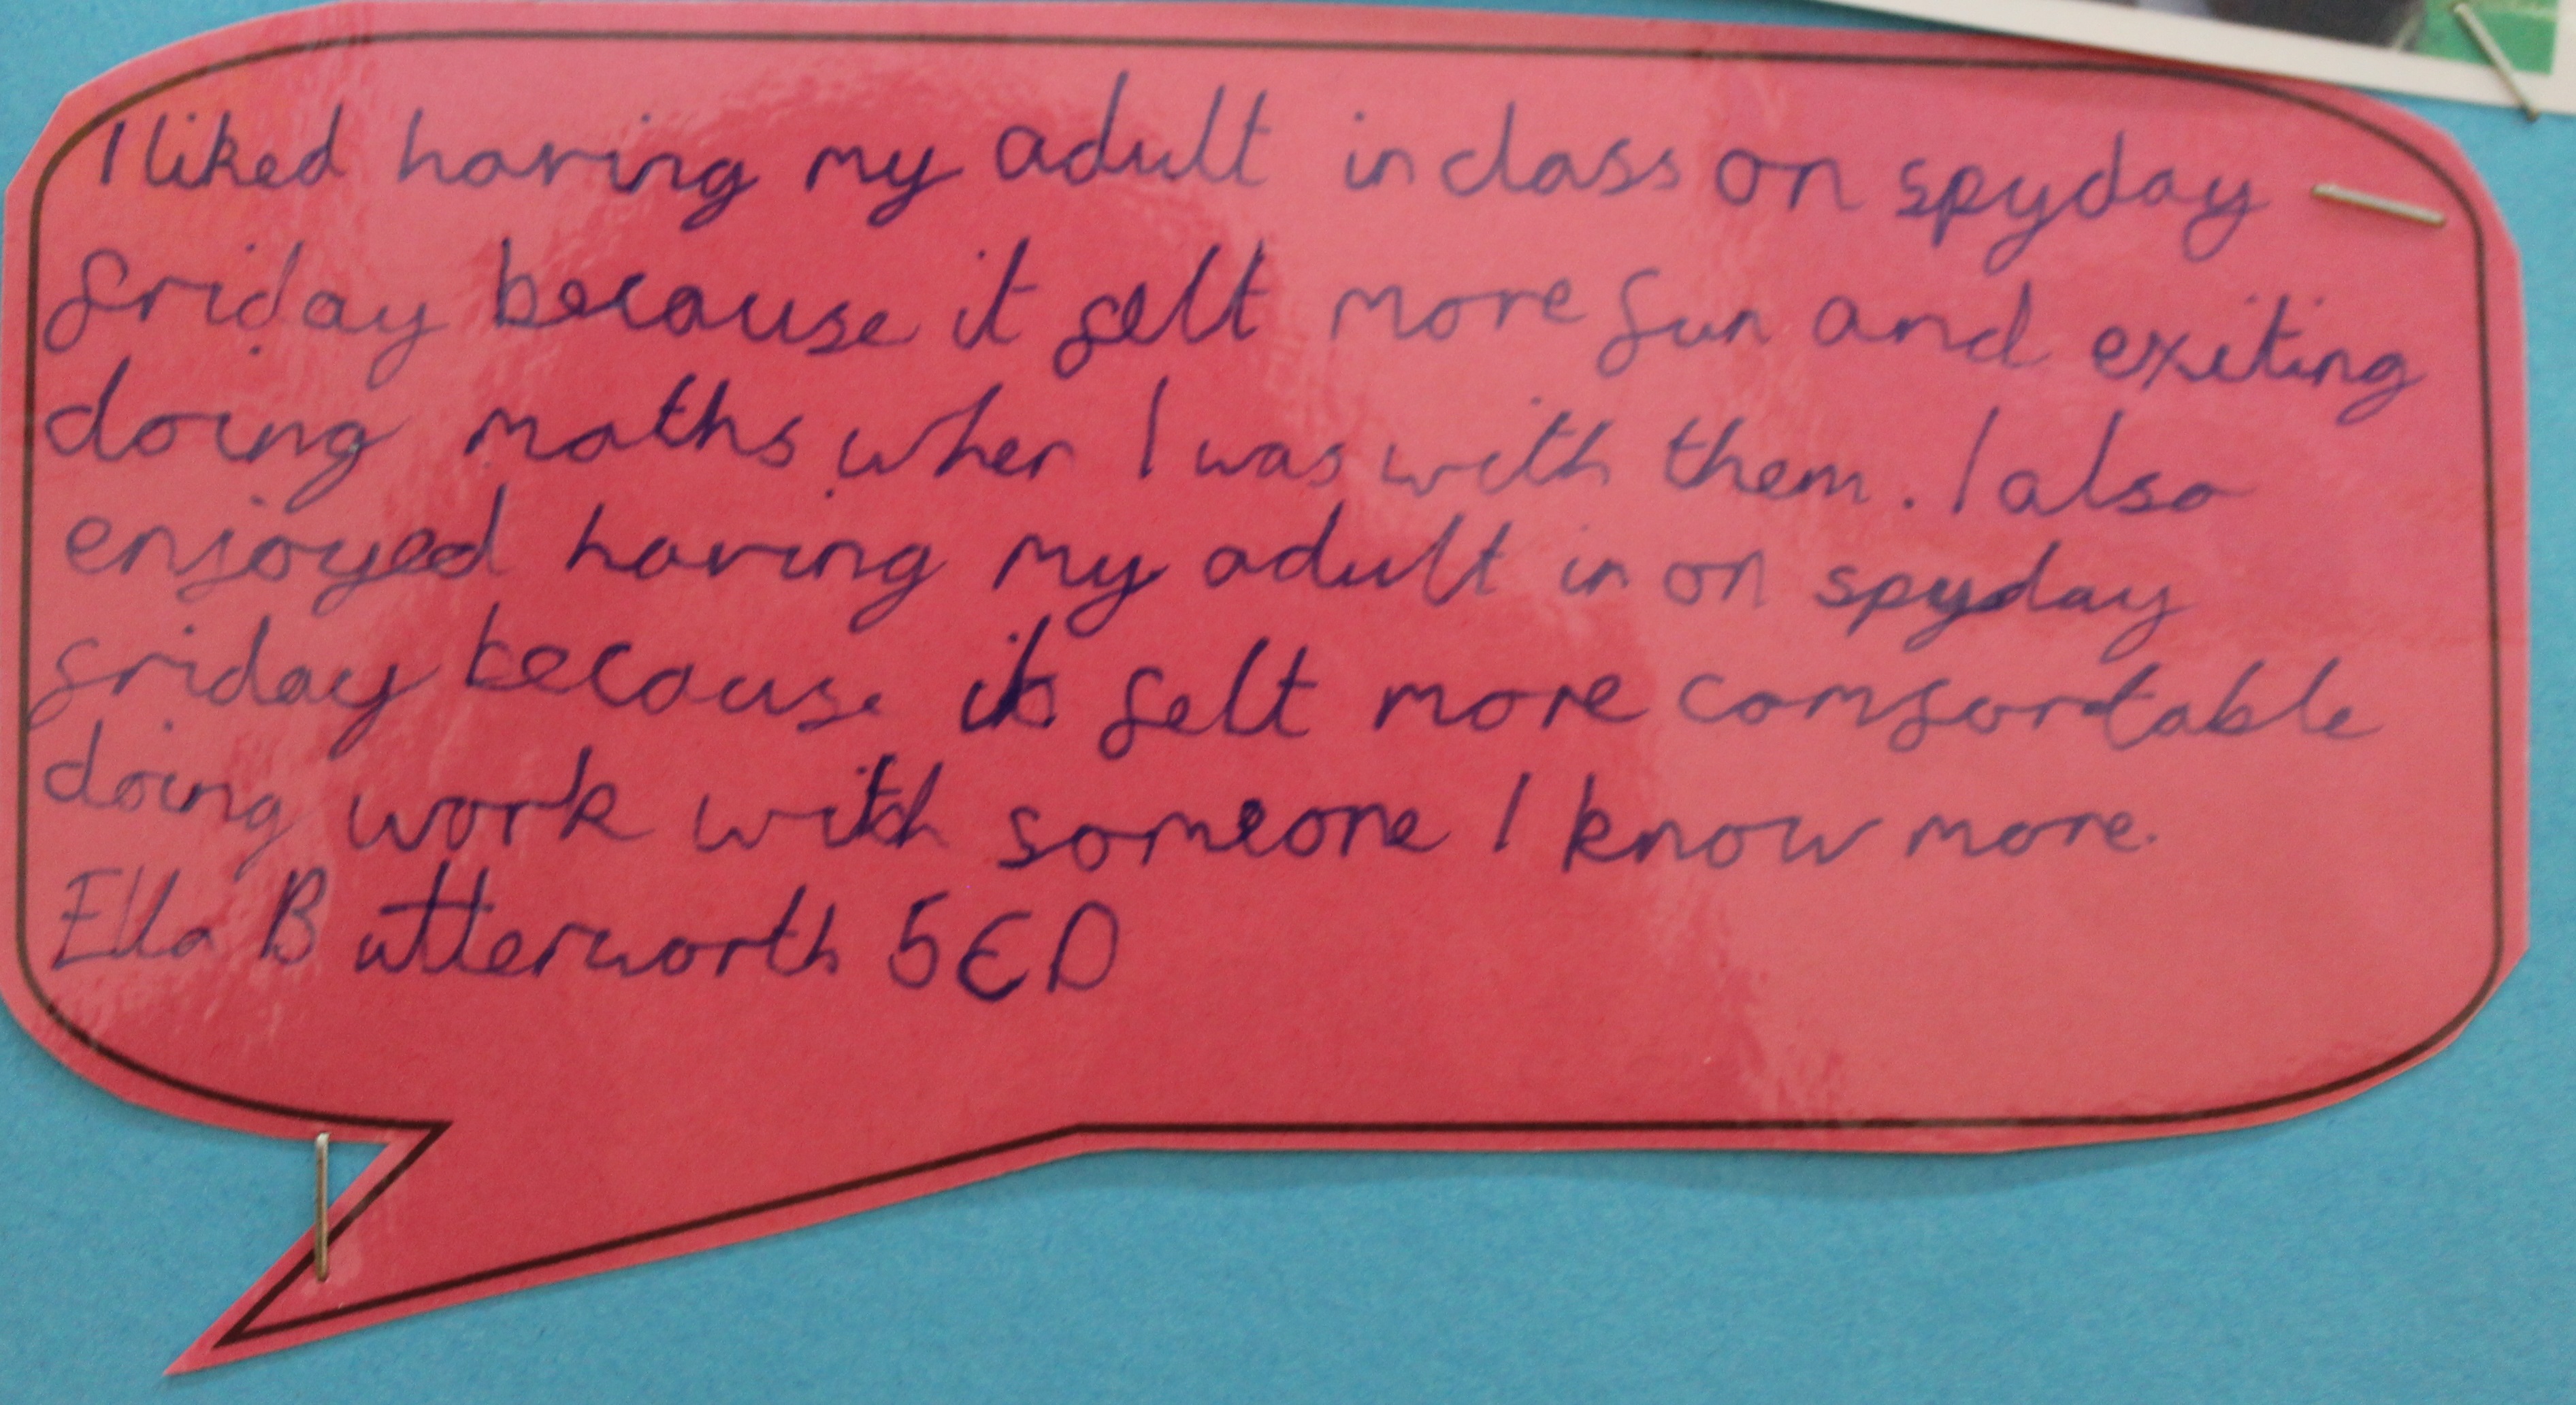 I liked having my adult in class on spyday
friday because it felt more fun and exiting
doing maths when I was with them. I also
enjoyed having my adult in on spyday
friday because it felt more comfortable
doing work with someone I know more.
Ella Butterworth 5ED